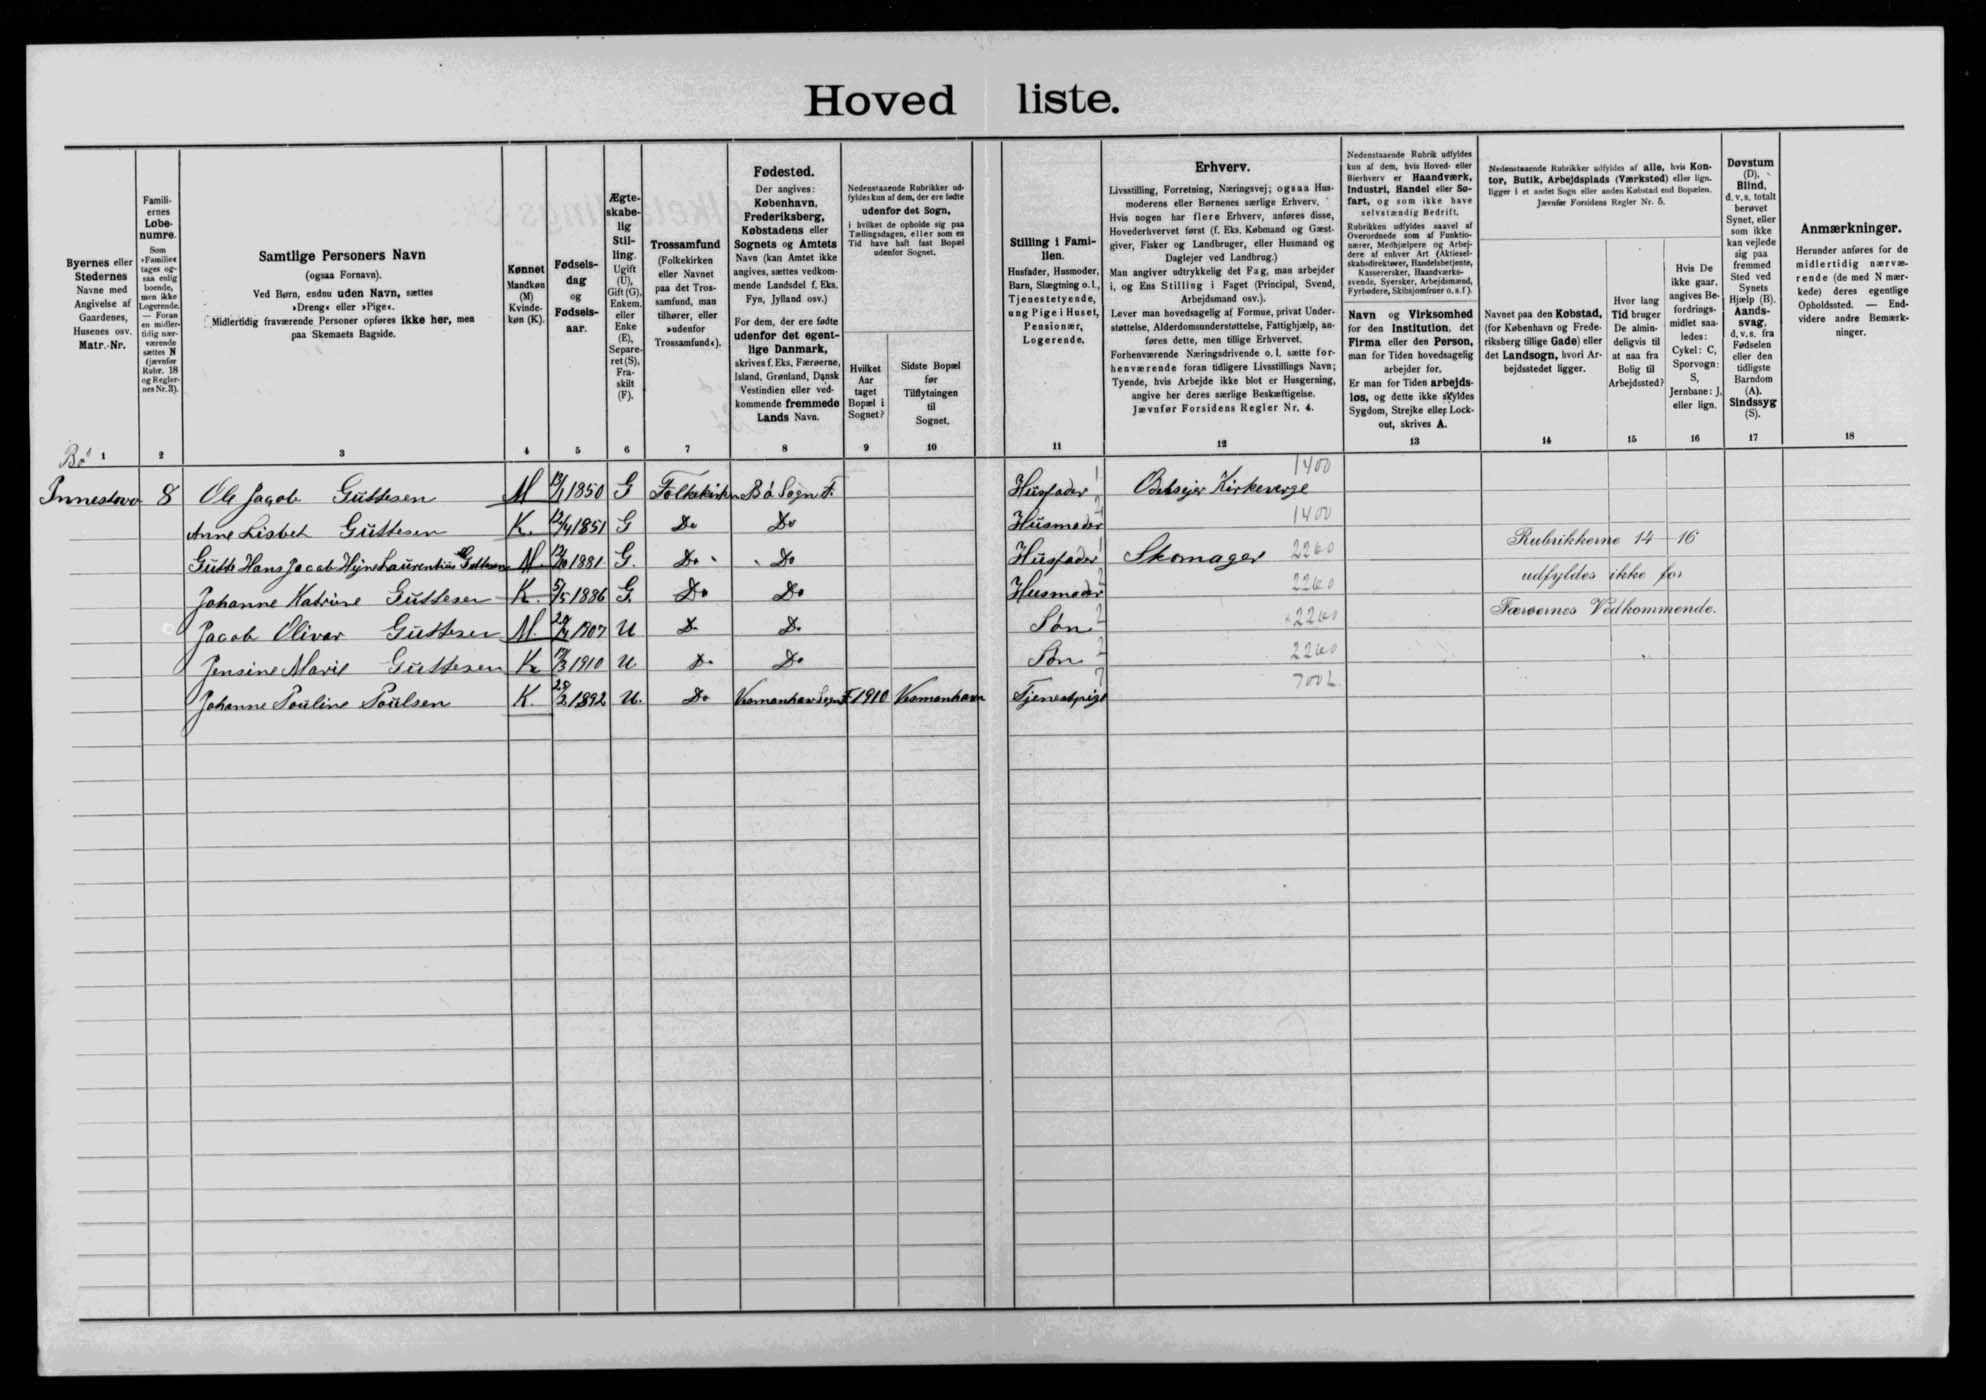 Hoved liste.
Byernes eller
Stedernes
Navne med
Angivelse af
Gaardenes,
Husenes osv.
Matr.-Nr.
Famili-
ernes
Løbe-
numre.
Som
»Familie«
tages og-
saa enlig
boende,
men ikke
Logerende.
— Foran
en midler-
tidig nær-
værende
sættes N
(jævnfør
Rubr. 18
og Regler-
nes Nr. 3).
Samtlige Personers Navn
(ogsaa Fornavn).
Ved Børn, endnu uden Navn, sættes
»Dreng« eller »Pige«.
Midlertidig fraværende Personer opføres ikke her, men
paa Skemaets Bagside.
Kønnet
Mandkøn
(M)
Kvinde-
køn (K).
Fødsels-
dag
og
Fødsels-
aar.
Ægte-
skabe-
lig
Stil-
ling.
Ugift
(U),
Gift (G),
Enkem.
eller
Enke
(E),
Separe-
ret (S),
Fra-
skilt
(F).
Trossamfund
(Folkekirken
eller Navnet
paa det Tros-
samfund, man
tilhører, eller
»udenfor
Trossamfund«).
Fødested.
Der angives:
København,
Frederiksberg,
Købstadens eller
Sognets og Amtets
Navn (kan Amtet ikke
angives, sættes vedkom-
mende Landsdel f. Eks.
Fyn, Jylland osv.)
For dem, der ere fødte
udenfor det egent-
lige Danmark,
skrives f. Eks. Færøerne,
Island, Grønland, Dansk
Vestindien eller ved-
kommende fremmede
Lands Navn.
Nedenstaaende Rubrikker ud-
fyldes kun af dem, der ere fødte
udenfor det Sogn,
i hvilket de opholde sig paa
Tællingsdagen, eller som en
Tid have haft fast Bopæl
udenfor Sognet.
Hvilket
Aar
taget
Bopæl i
Sognet?
Sidste Bopæl
før
Tilflytningen
til
Sognet.
Stilling i Fami-
lien.
Husfader, Husmoder,
Barn, Slægtning o. l.,
Tjenestetyende,
ung Pige i Huset,
Pensionær,
Logerende.
Erhverv.
Livsstilling, Forretning, Næringsvej; ogsaa Hus-
moderens eller Børnenes særlige Erhverv.
Hvis nogen har flere Erhverv, anføres disse,
Hovederhvervet først (f. Eks. Købmand og Gæst-
giver, Fisker og Landbruger, eller Husmand og
Daglejer ved Landbrug.)
Man angiver udtrykkelig det Fag, man arbejder
i, og Ens Stilling i Faget (Principal, Svend,
Arbejdsmand osv.).
Lever man hovedsagelig af Formue, privat Under-
støttelse, Alderdomsunderstøttelse, Fattighjælp, an-
føres dette, men tillige Erhvervet.
Forhenværende Næringsdrivende o. l. sætte for-
henværende foran tidligere Livsstillings Navn;
Tyende, hvis Arbejde ikke blot er Husgerning,
angive her deres særlige Beskæftigelse.
Jævnfør Forsidens Regler Nr. 4.
Nedenstaaende Rubrik udfyldes
kun af dem, hvis Hoved- eller
Bierhverv er Haandværk,
Industri, Handel eller Sø-
fart, og som ikke have
selvstændig Bedrift.
Rubrikken udfyldes saavel af
Overordnede som af Funktio-
nærer, Medhjælpere og Arbej-
dere af enhver Art (Aktiesel-
skabsdirektører, Handelsbetjente,
Kassererskér, Haandværks-
svende, Syersker, Arbejdsmænd,
Fyrbødere, Skibsjomfruer o. s. f.).
Navn og Virksomhed
for den Institution, det
Firma eller den Person,
man for Tiden hovedsagelig
arbejder for.
Er man for Tiden arbejds-
løs, og dette ikke skyldes
Sygdom, Strejke eller Lock-
out, skrives A.
Nedenstaaende Rubrikker udfyldes af alle, hvis Kon-
tor, Butik, Arbejdsplads (Værksted) eller lign.
ligger i et andet Sogn eller anden Købstad end Bopælen.
Jævnfør Forsidens Regler Nr. 5.
Navnet paa den Købstad,
(for København og Frede-
riksberg tillige Gade) eller
det Landsogn, hvori Ar-
bejdsstedet ligger.
Hvor lang
Tid bruger
De almin-
deligvis til
at naa fra
Bolig til
Arbejdssted?
Hvis De
ikke gaar,
angives Be-
fordrings-
midlet saa-
ledes:
Cykel: C,
Sporvogn:
S,
Jernbane: J,
eller lign.
Døvstum
(D),
Blind,
d. v. s. totalt
berøvet
Synet, eller
som ikke
kan vejlede
sig paa
fremmed
Sted ved
Synets
Hjælp (B).
Aands-
svag,
d. v. s. fra
Fødselen
eller den
tidligste
Barndom
(A).
Sindssyg
(S).
Anmærkninger.
Herunder anføres for de
midlertidig nærvæ-
rende (de med N mær-
kede) deres egentlige
Opholdssted. — End-
videre andre Bemærk-
ninger.
1 2 3 4 5 6 7 8 9 10 11 12 13 14 15 16 17 18
Bø
Innestova 8 Ole Jacob Guttesen M 1850 G Folkekirken Bø Sogn F. Husfader 1 Kirkeverge 1400
Anne Lisbet Guttesen K. 12/4 1851 G Do Do Husmoder 1400
Gutte Hans Jacob Guttesen M. 1881. G. Do Do Husfader 1 Skomager 2260
Johanne Katrine Guttesen K. 5/5 1886 G. Do Do Husmoder 2 2260
Jacob Olivar Guttesen M. 1907 U Do Do Søn 2 2260
Jensine Marie Guttesen K. 1910 U Do Do Søn 2 2260
Johanne Pouline Poulsen K. 28/2 1892 U. Do 1910 Tjenestpige 7
Rubrikkerne 14-16
udfyldes ikke for
Færøernes Vedkommende.